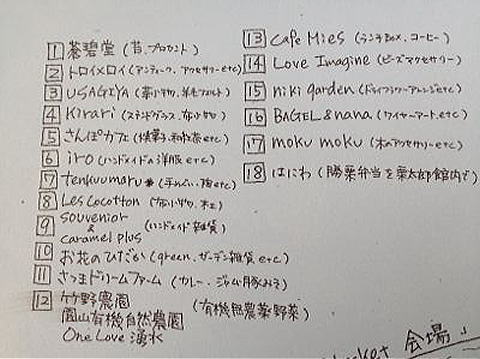 1 蒼碧堂 (昔、ブロカント)
2 トロイメロイ (アンティーク、アクセサリー etc)
3 USAGIYA (革小物、羊毛フェルト)
4 Kirari (ステンドグラス、布小物)
5 さんぽカフェ (焼菓子、和紅茶 etc)
6 iro (ハンドメイドの洋服 etc)
7 tenkuumaru (手ぬぐい、陶 etc)
8 Les Cocotton (布小物、木工)
9 souvenior & caramel plus (ハンドメイド雑貨)
10 お花のひだか (green、ガーデン雑貨 etc)
11 さつまドリームファーム (カレー、ジャム、豚みそ)
12 竹野農園 (有機無農薬野菜)
園山有機自然農園
One Love 湧水
13 Cafe Mies (ランチBox、コーヒー)
14 Love Imagine (ビーズアクセサリー)
15 niki garden (ドライフラワーアレンジ etc)
16 BAGEL & nana (ワイヤーアート etc)
17 moku moku (木のアクセサリー etc)
18 はにわ (勝栗弁当を栗太郎館内で)
会場」